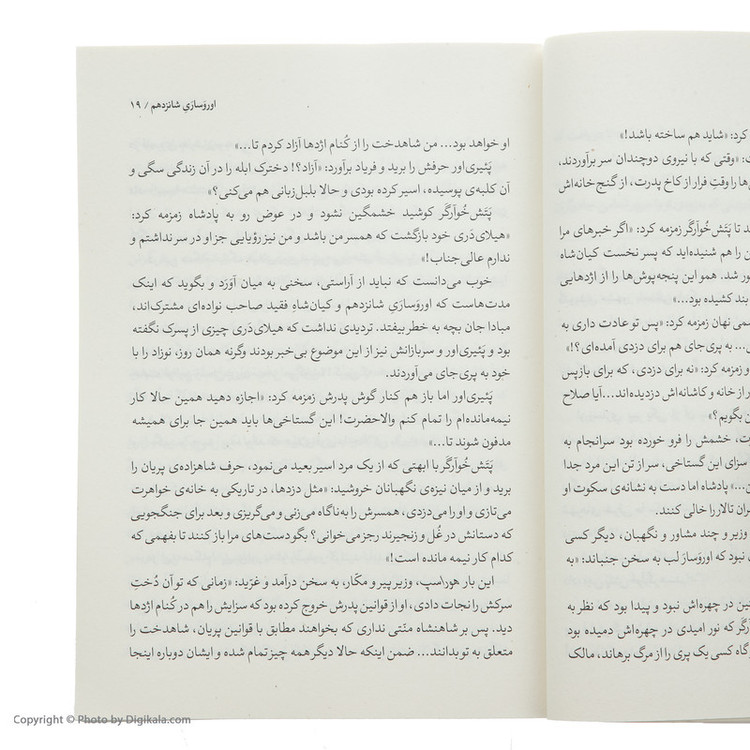 اوروَسارَیِ شانزدهم / ۱۹
او خواهد بود... من شاهدخت را از کُنام اژدها آزاد کردم تا...»
پَئیری‌اور حرفش را برید و فریاد برآورد: «آزاد؟! دخترک ابله را در آن زندگی سگی و
آن کلبه‌ی پوسیده، اسیر کرده بودی و حالا بلبل‌زبانی هم می‌کنی؟»
پَتَش‌خُوآرگَر کوشید خشمگین نشود و در عوض رو به پادشاه زمزمه کرد:
«هیلای‌دَری خود بازگشت که همسر من باشد و من نیز رؤیایی جز او در سر نداشتم و
ندارم عالی‌جناب!»
خوب می‌دانست که نباید از آراستی، سخنی به میان آوَرَد و بگوید که اینک
مدت‌هاست که اوروَسارَیِ شانزدهم و کیان‌شاهِ فقید صاحب نواده‌ای مشترک‌اند،
مبادا جان بچه به خطر بیفتد. تردیدی نداشت که هیلای‌دَری چیزی از پسرک نگفته
بود و پَئیری‌اور و سربازانش نیز از این موضوع بی‌خبر بودند وگرنه همان روز، نوزاد را با
خود به پری‌جای می‌آوردند.
پَئیری‌اور اما باز هم کنار گوش پدرش زمزمه کرد: «اجازه دهید همین حالا کار
نیمه‌مانده‌ام را تمام کنم والاحضرت! این گستاخی‌ها باید همین جا برای همیشه
مدفون شوند تا...»
پَتَش‌خُوآرگَر با ابهتی که از یک مرد اسیر بعید می‌نمود، حرف شاهزاده‌ی پریان را
برید و از میان نیزه‌ی نگهبانان خروشید: «مثل دزدها، در تاریکی به خانه‌ی خواهرت
می‌تازی و او را می‌دزدی، همسرش را به‌ناگاه می‌زنی و می‌گریزی و بعد برای جنگجویی
که دستانش در غُل و زنجیرند رجز می‌خوانی؟ بگو دست‌های مرا باز کنند تا بفهمی که
کدام کار نیمه مانده است!»
این بار هوراسپ، وزیر پیر و مکّار، به سخن درآمد و غرّید: «زمانی که تو آن دُختِ
سرکش را نجات دادی، او از قوانین پدرش خروج کرده بود که سزایش را هم در کُنام اژدها
دید. پس بر شاهنشاه منّتی نداری که بخواهند مطابق با قوانین پریان، شاهدخت را
متعلق به تو بدانند... ضمن اینکه حالا دیگر همه چیز تمام شده و ایشان دوباره اینجا
کرد: «شاید هم ساخته باشد!»
«وقتی که با نیروی دوچندان سر برآوردند،
را وقتِ فرار از کاخ پدرت، از گنج‌خانه‌اش
تا پَتَش‌خُوآرگَر زمزمه کرد: «اگر خبرهای مرا
را هم شنیده‌اید که پسر نخست کیان‌شاه
شد. همو این پنجه‌پوش‌ها را از اژدهایی
بند کشیده بود...»
نهان زمزمه کرد: «پس تو عادت داری به
... به پری‌جای هم برای دزدی آمده‌ای؟!»
و زمزمه کرد: «نه برای دزدی، که برای بازپس
از خانه و کاشانه‌اش دزدیده‌اند... آیا صلاح
بگویم؟»
خشمش را فرو خورده بود سرانجام به
سزای این گستاخی، سر از تن این مرد جدا
...» پادشاه اما دست به نشانه‌ی سکوت او
تالار را خالی کنند.
وزیر و چند مشاور و نگهبان، دیگر کسی
نبود که اوروَسار لب به سخن جنباند: «به
در چهره‌اش نبود و پیدا بود که نظر به
که نور امیدی در چهره‌اش دمیده بود
گاه کسی یک پری را از مرگ برهاند، مالک
Copyright © Photo by Digikala.com